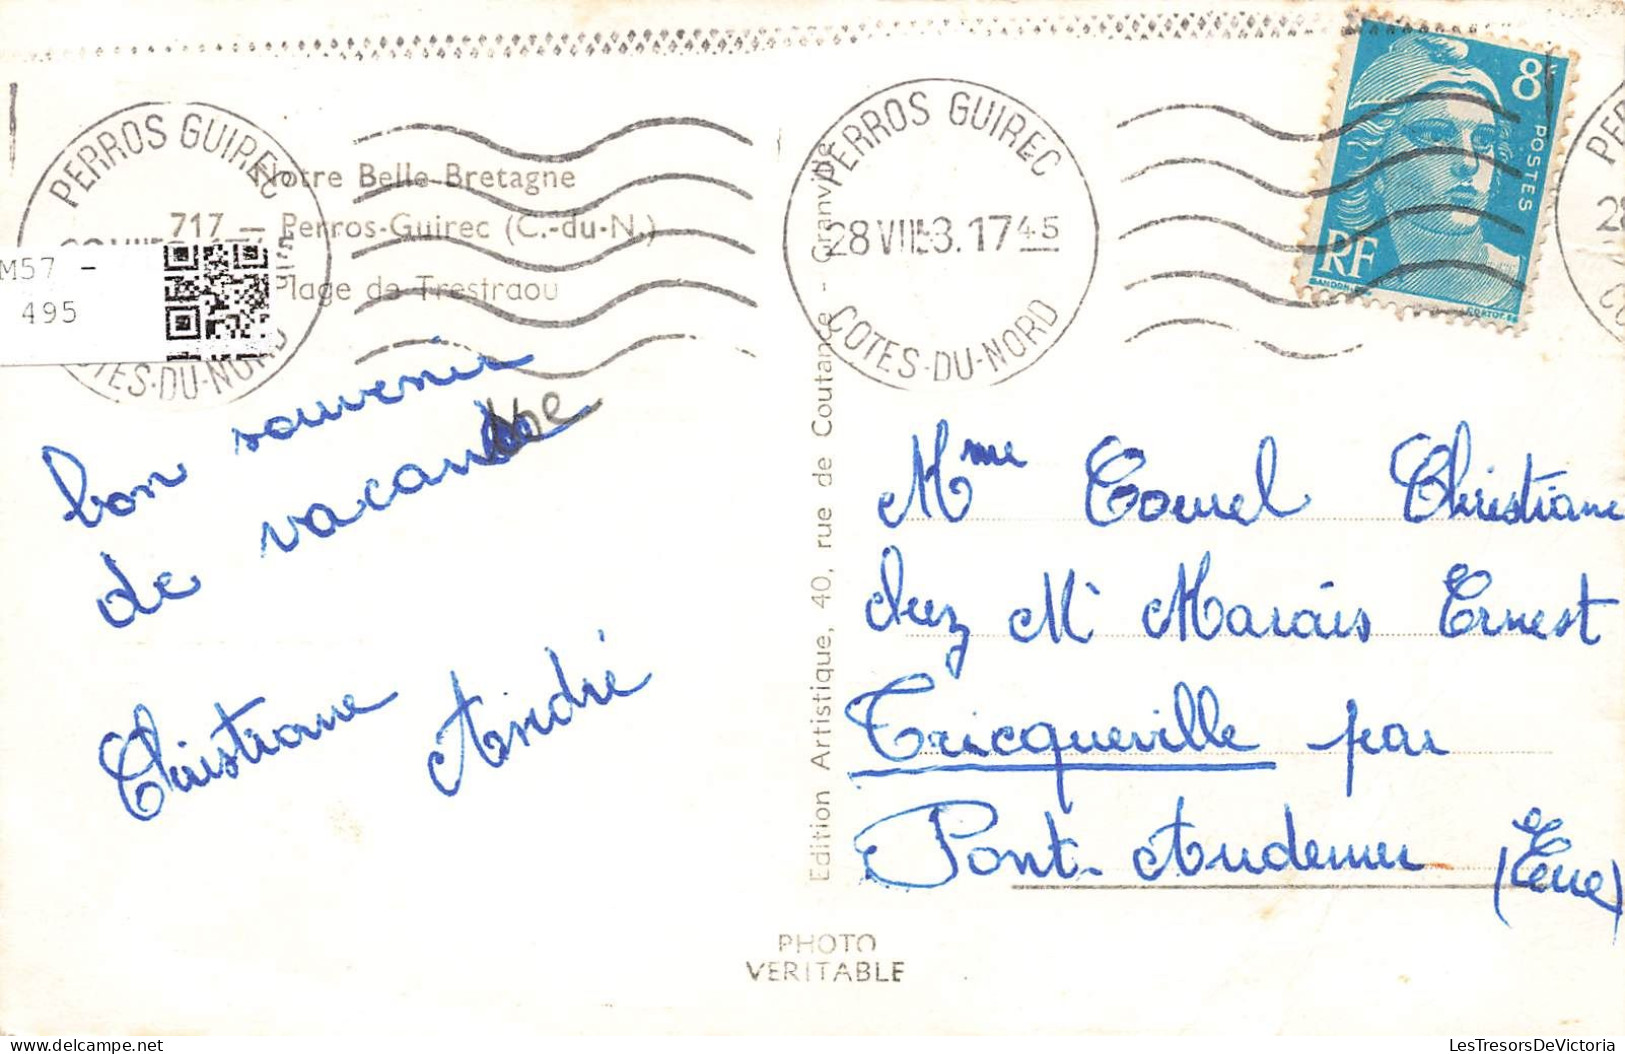 PERROS GUIREC
COTES-DU-NORD
Notre Belle Bretagne
717 — Perros-Guirec (C.-du-N.)
Plage de Trestraou
M57 -
495
bon souvenir
de vacance
Christiane André
PERROS GUIREC
28 VIII 53. 17 45
COTES-DU-NORD
8F
POSTES
RF
GANDON
CORTOT.SC
Edition Artistique, 40, rue de Coutance - Granville
Mme Christiane
chez Mr Marais Ernest
Tricqueville par
Pont-Audemer (Eure)
PHOTO
VERITABLE
delcampe.net
LesTresorsDeVictoria